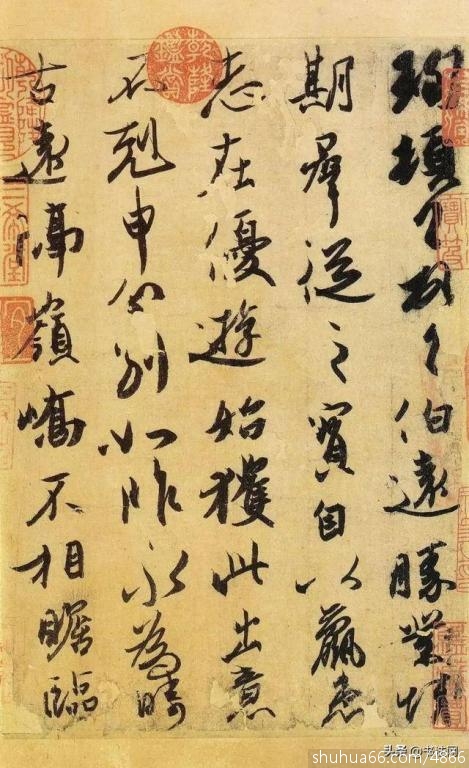 珣頓首頓首伯遠勝業情
期群從之寶自以羸患
志在優遊始獲此出意
不剋申分別如昨永為疇
古遠隔嶺嶠不相瞻臨
乾隆鑑賞
頭条 @书法网
shuhua66.com/4866